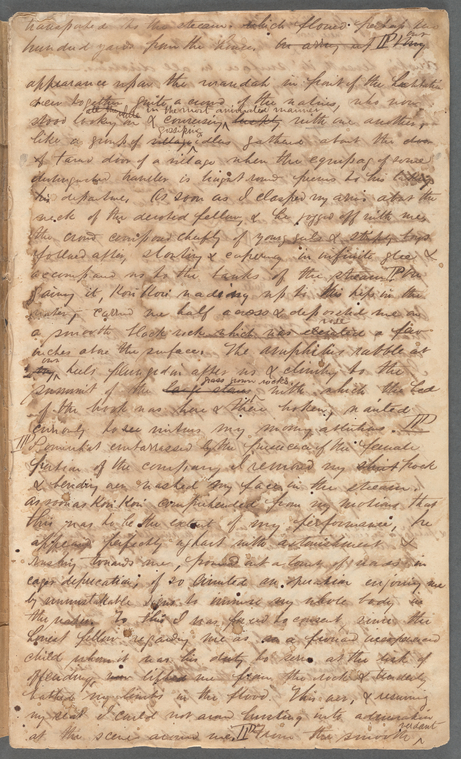 transported to the stream which flowed perhaps one
hundred yards from the house. On our
appearance upon the varandah in front of the habitation
drew together quite a crowd of the natives, who now
in the most animated manner
stood looking on & conversing with one another
gossiping
like a group of villagers gathered about the door
of tavern door of a village when the equipage of some
distinguished traveler is brought round previous to his
his departure. As soon as I clasped my arms about the
neck of the devoted fellow, & he jogged off with me
the crowd composed chiefly of young girls & boys
followed after, shouting & capering in infinite glee &
accompanied us to the banks of the stream. On
gaining it, Kori Kori wading up to his hips in the
water, carried me half across & deposited me on
a smooth black rock which rose a few
inches above the surface. The amphibious rabble at
our heels plunged in after us & climbing to the
grass grown rocks
summit of the with which the bed
of the brook was here & there broken, waited
curiously to witness my morning ablutions.
Somewhat embarrassed by the presence of the female
portion of the company I removed my frock
& bending over washed my face in the stream.
As soon as Kori Kori comprehended from my motions that
this was to be the extent of my performance, he
appeared perfectly aghast with astonishment &
rushing towards me, poured out a torrent of words in
eager deprecation of so limited an operation enjoining me
by unmistakable signs to immerse my whole body in
the water. To this I was forced to consent, since the
honest fellow regarding me as a froward inexperienced
child whom it was his duty to serve at the risk of
offending, lifted me from the rock & tenderly
bathed my limbs in the flood. This over, & resuming
my seat I could not avoid bursting into admiration
verdant
at the scene around me. From the smooth